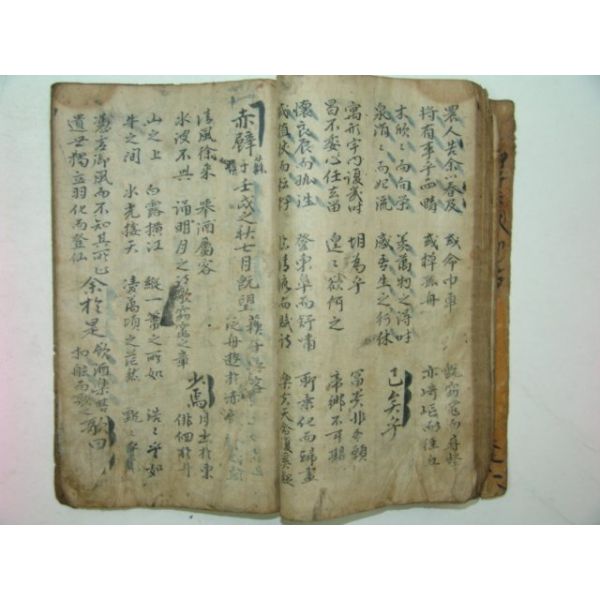 農人告余以春及 或命巾車 旣窈窕而尋壑
將有事乎西疇 或棹孤舟 亦崎嶇而經丘
木欣々而向榮 羨萬物之得時
泉涓々而始流 感吾生之行休 已矣乎
寓形宇內復幾時 胡爲乎 富貴非吾願
曷不委心任去留 遑々欲何之 帝鄕不可期
懷良辰而孤往 登東皐而舒嘯 聊乘化而歸盡
或植杖而耘耔 臨清流而賦詩 樂夫天命復奚疑
赤壁 蘇 壬戌之秋七月旣望 蘇子與客
泛舟遊於赤壁
清風徐來 擧酒屬客 少焉 月出於東
水波不興 誦明月之詩歌窈窕之章 徘徊於斗
山之上 白露橫江 縱一葦之所如 浩々乎如
牛之間 水光接天 凌萬頃之茫然 飄々乎
憑虛御風而不知其所止 余於是 飮酒樂甚 歌曰
遺世獨立羽化而登仙 扣舷而歌之